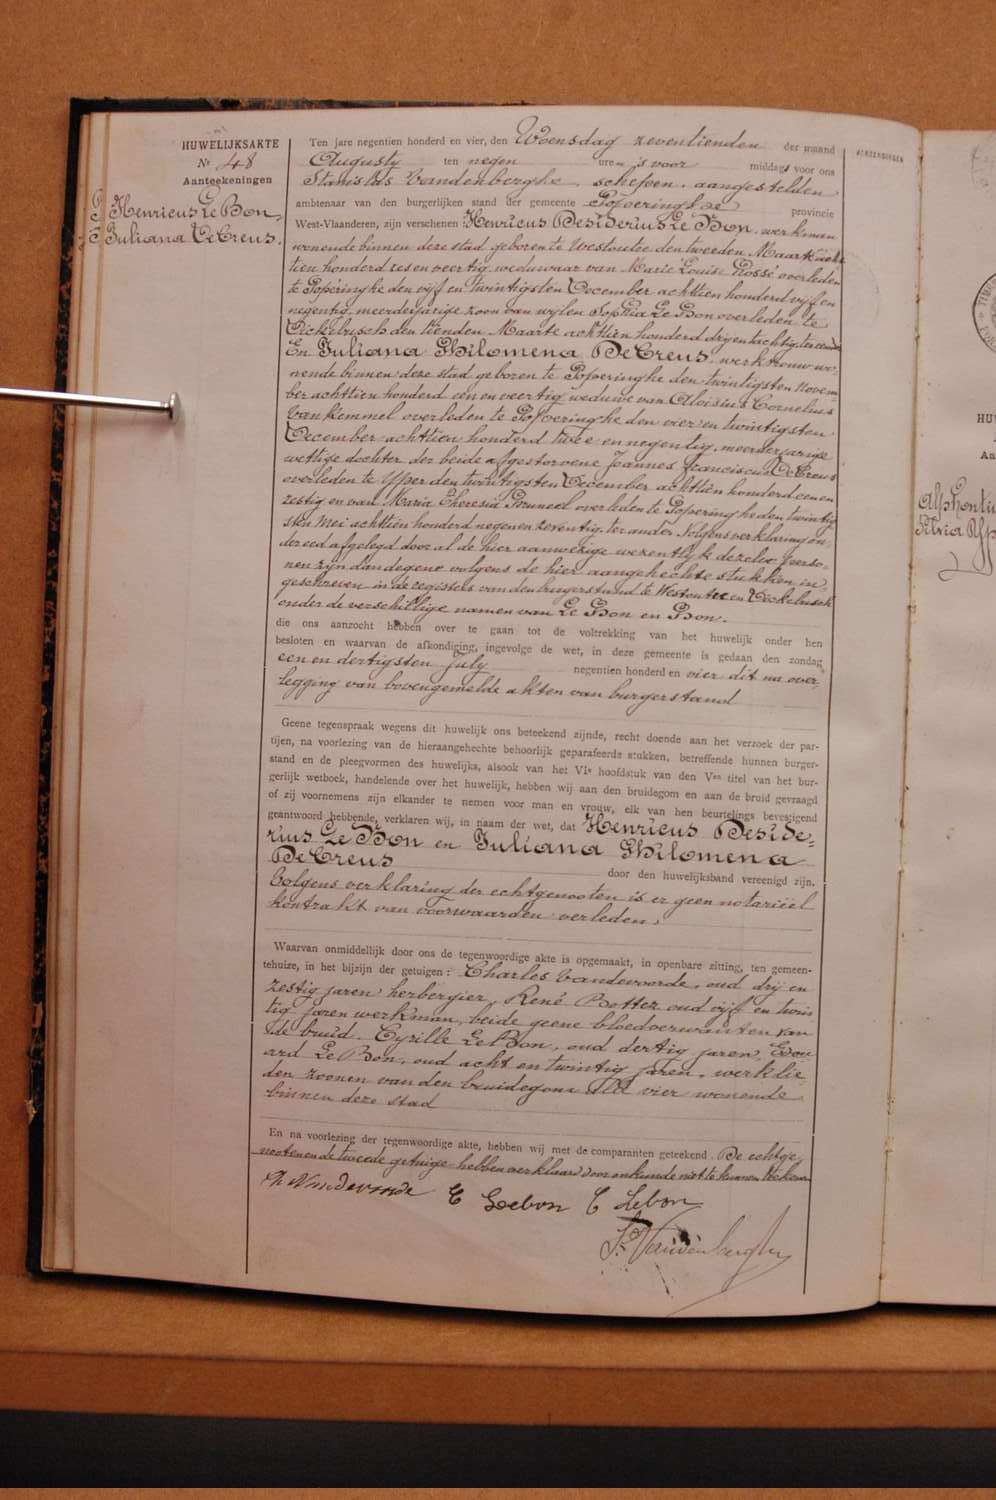 HUWELIJKSAKTE
Nr 48
Aanteekeningen
Henricus Le Bon,
Juliana DeCreus.
Ten jare negentien honderd en vier, den Woensdag zeventienden der maand
Augusty ten negen uren 's voor middags voor ons
Stanislas Vandenberghe, schepen, aangestelden
ambtenaar van den burgerlijken stand der gemeente Poperinghe provincie
West-Vlaanderen, zijn verschenen: Henricus Desiderius Le Bon, werkman
wonende binnen deze stad geboren te Westoutre den tweeden Maart acht
tien honderd zes en veertig, weduwaar van Marie Louise Rossé overleden
te Poperinghe den vijf en twintigsten December achttien honderd vijf en
negentig, meerderjarige zoon van wijlen Sophia Le Bon overleden te
Dickebusch den tienden Maarte achttien honderd drij en tachtig, ter eender
En Juliana Philomena DeCreus werkvrouw wo-
nende binnen deze stad geboren te Poperinghe den twintigsten Novem-
ber achttien honderd een en veertig weduwe van Aloisius Cornelius
Vanklemmel overleden te Poperinghe den vier en twintigsten
December achttien honderd twee en negentig, meerderjarige
wettige dochter der beide afgestorvene Joannes Franciscus DeCreus
overleden te Yper den twintigsten December achttien honderd een en
zestig en van Maria Theresia Pouneel overleden te Poperinghe den twintig
sten Mei achttien honderd negen en zeventig, ter ander. Volgens verklaring on-
der eed afgelegd door al de hier aanwezige wezentlijk dezelve perso-
nen zijn dandegene volgens de hier aangehechte stukken in
geschreven in de registers van den burgerstand te Westoutre en Dickebusch
onder de verschillige namen van Le Bon en Bon.
die ons aanzocht hebben over te gaan tot de voltrekking van het huwelijk onder hen
besloten en waarvan de afkondiging, ingevolge de wet, in deze gemeente is gedaan den zondag
een en dertigsten July negentien honderd en vier dit na over-
legging van bovengemelde akten van burgerstand
Geene tegenspraak wegens dit huwelijk ons beteekend zijnde, recht doende aan het verzoek der par-
tijen, na voorlezing van de hieraangehechte behoorlijk geparafeerde stukken, betreffende hunnen burger-
stand en de pleegvormen des huwelijks, alsook van het VIe hoofdstuk van den Ven titel van het bur-
gerlijk wetboek, handelende over het huwelijk, hebben wij aan den bruidegom en aan de bruid gevraagd
of zij voornemens zijn elkander te nemen voor man en vrouw, elk van hen beurtelings bevestigend
geantwoord hebbende, verklaren wij, in naam der wet, dat Henricus Deside-
rius Le Bon en Juliana Philomena
DeCreus door den huwelijksband vereenigd zijn.
Volgens verklaring der echtgenooten is er geen notariëel
kontrakt van voorwaarden verleden.
Waarvan onmiddellijk door ons de tegenwoordige akte is opgemaakt, in openbare zitting, ten gemeen-
tehuize, in het bijzijn der getuigen: Charles Vandevoorde, oud drij en
zestig jaren herbergier, René Botter oud vijf en twin
tig jaren werkman, beide geene bloedverwanten van
de bruid. Cyrille LeBon, oud dertig jaren, Edou
ard LeBon, oud acht en twintig jaren, werklie
den zoonen van den bruidegom alle vier wonende
binnen deze stad
En na voorlezing der tegenwoordige akte, hebben wij met de comparanten geteekend. De echtge-
nooten en de tweede getuige hebben verklaard voor onkunde niet te kunnen teekenen
Ch Vandevoorde E Lebon C Lebon
St Vandenberghe
KENDEKINGEN
HU
Aa
Alphonti
Silvia